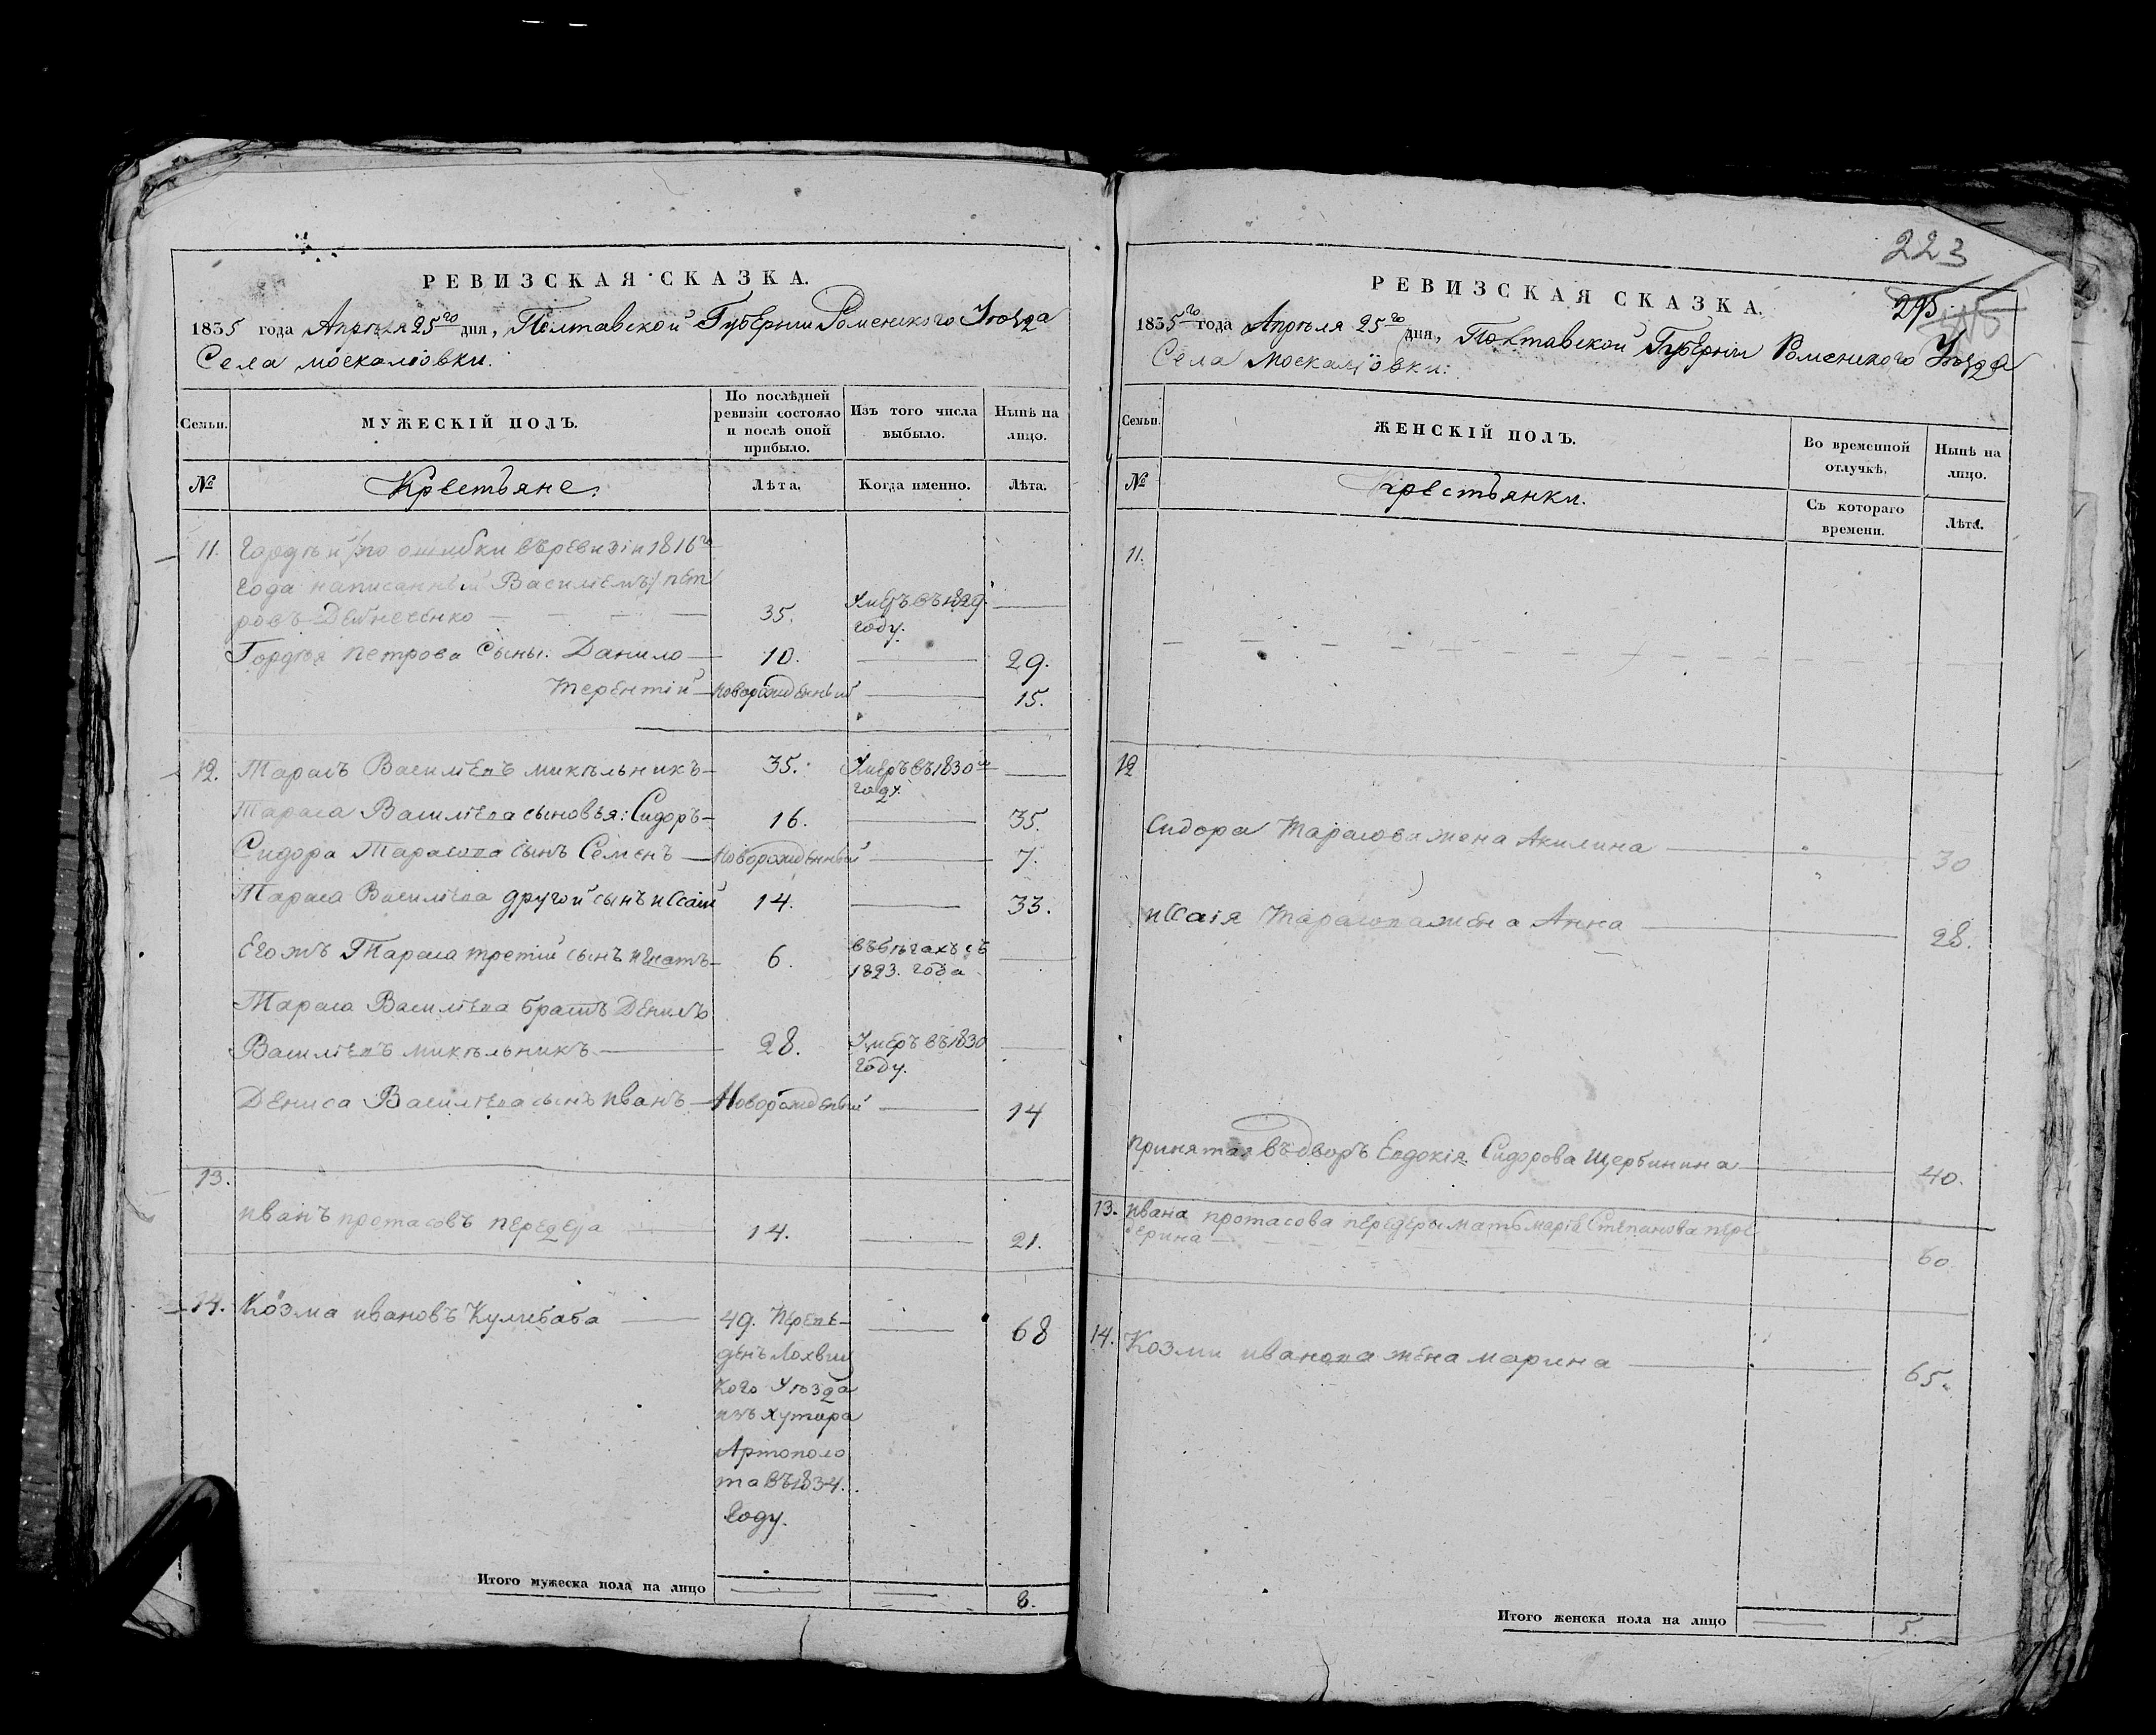 РЕВИЗСКАЯ СКАЗКА.
1835 года Апрѣля 25го дня, Полтавской Губерніи Роменского Уѣзда
Села москалювки.
Семьи.
МУЖЕСКІЙ ПОЛЪ.
По послѣдней ревизіи состояло и послѣ оной прибыло.
Изъ того числа выбыло.
Нынѣ на лицо.
№
Крестьяне.
Лѣта.
Когда именно.
Лѣта.
11. Гордѣй /по ошибки въ ревизіи 1816го
года написанный Василіемъ/ пет
ровъ 35. Умеръ въ 1829. году.
Гордѣя петрова Сыны: Данило 10. 29.
терентій новорожденный 15.
12. Тарасъ Василіевъ микѣльникъ 35. Умеръ въ 1830м году.
Тараса Василіева сыновья: Сидоръ 16. 35.
Сидора Тарасова сынъ Семенъ Новорожденный 7.
Тараса Василіева другой сынъ иссаій 14. 33.
Егожъ Тараса третій сынъ игнатъ 6. въ бѣгахъ съ 1823. года
Тараса Василіева братъ Денисъ
Василіевъ микѣльникъ 28. Умеръ въ 1830 году.
Дениса Василіева сынъ иванъ Новорожденый 14
13.
иванъ протасовъ передера 14. 21.
14. Козма ивановъ Кулибаба 49. Переве- 68
денъ Лохвиц
кого Уѣзда
изъ хутора
Артополо
та въ 1834.
году.
Итого мужеска пола на лицо 8.
223
295
РЕВИЗСКАЯ СКАЗКА.
1835го года Апрѣля 25го дня, Полтавской Губерніи Роменского Уѣзда
Села Москалювки:
Семьи.
ЖЕНСКІЙ ПОЛЪ.
Во временной отлучкѣ.
Нынѣ на лицо.
№
Крестьянки.
Съ котораго времени.
Лѣта.
11.
12
Сидора Тарасова жена Акилина 30
иссаія Тарасова жена Анна 28.
принятая въ дворъ Евдокія Сидорова Щербинина 40.
13. ивана протасова передеры мать марія Степанова пере
дерина 60
14. Козми иванова жена марина 65.
Итого женска пола на лицо 5.